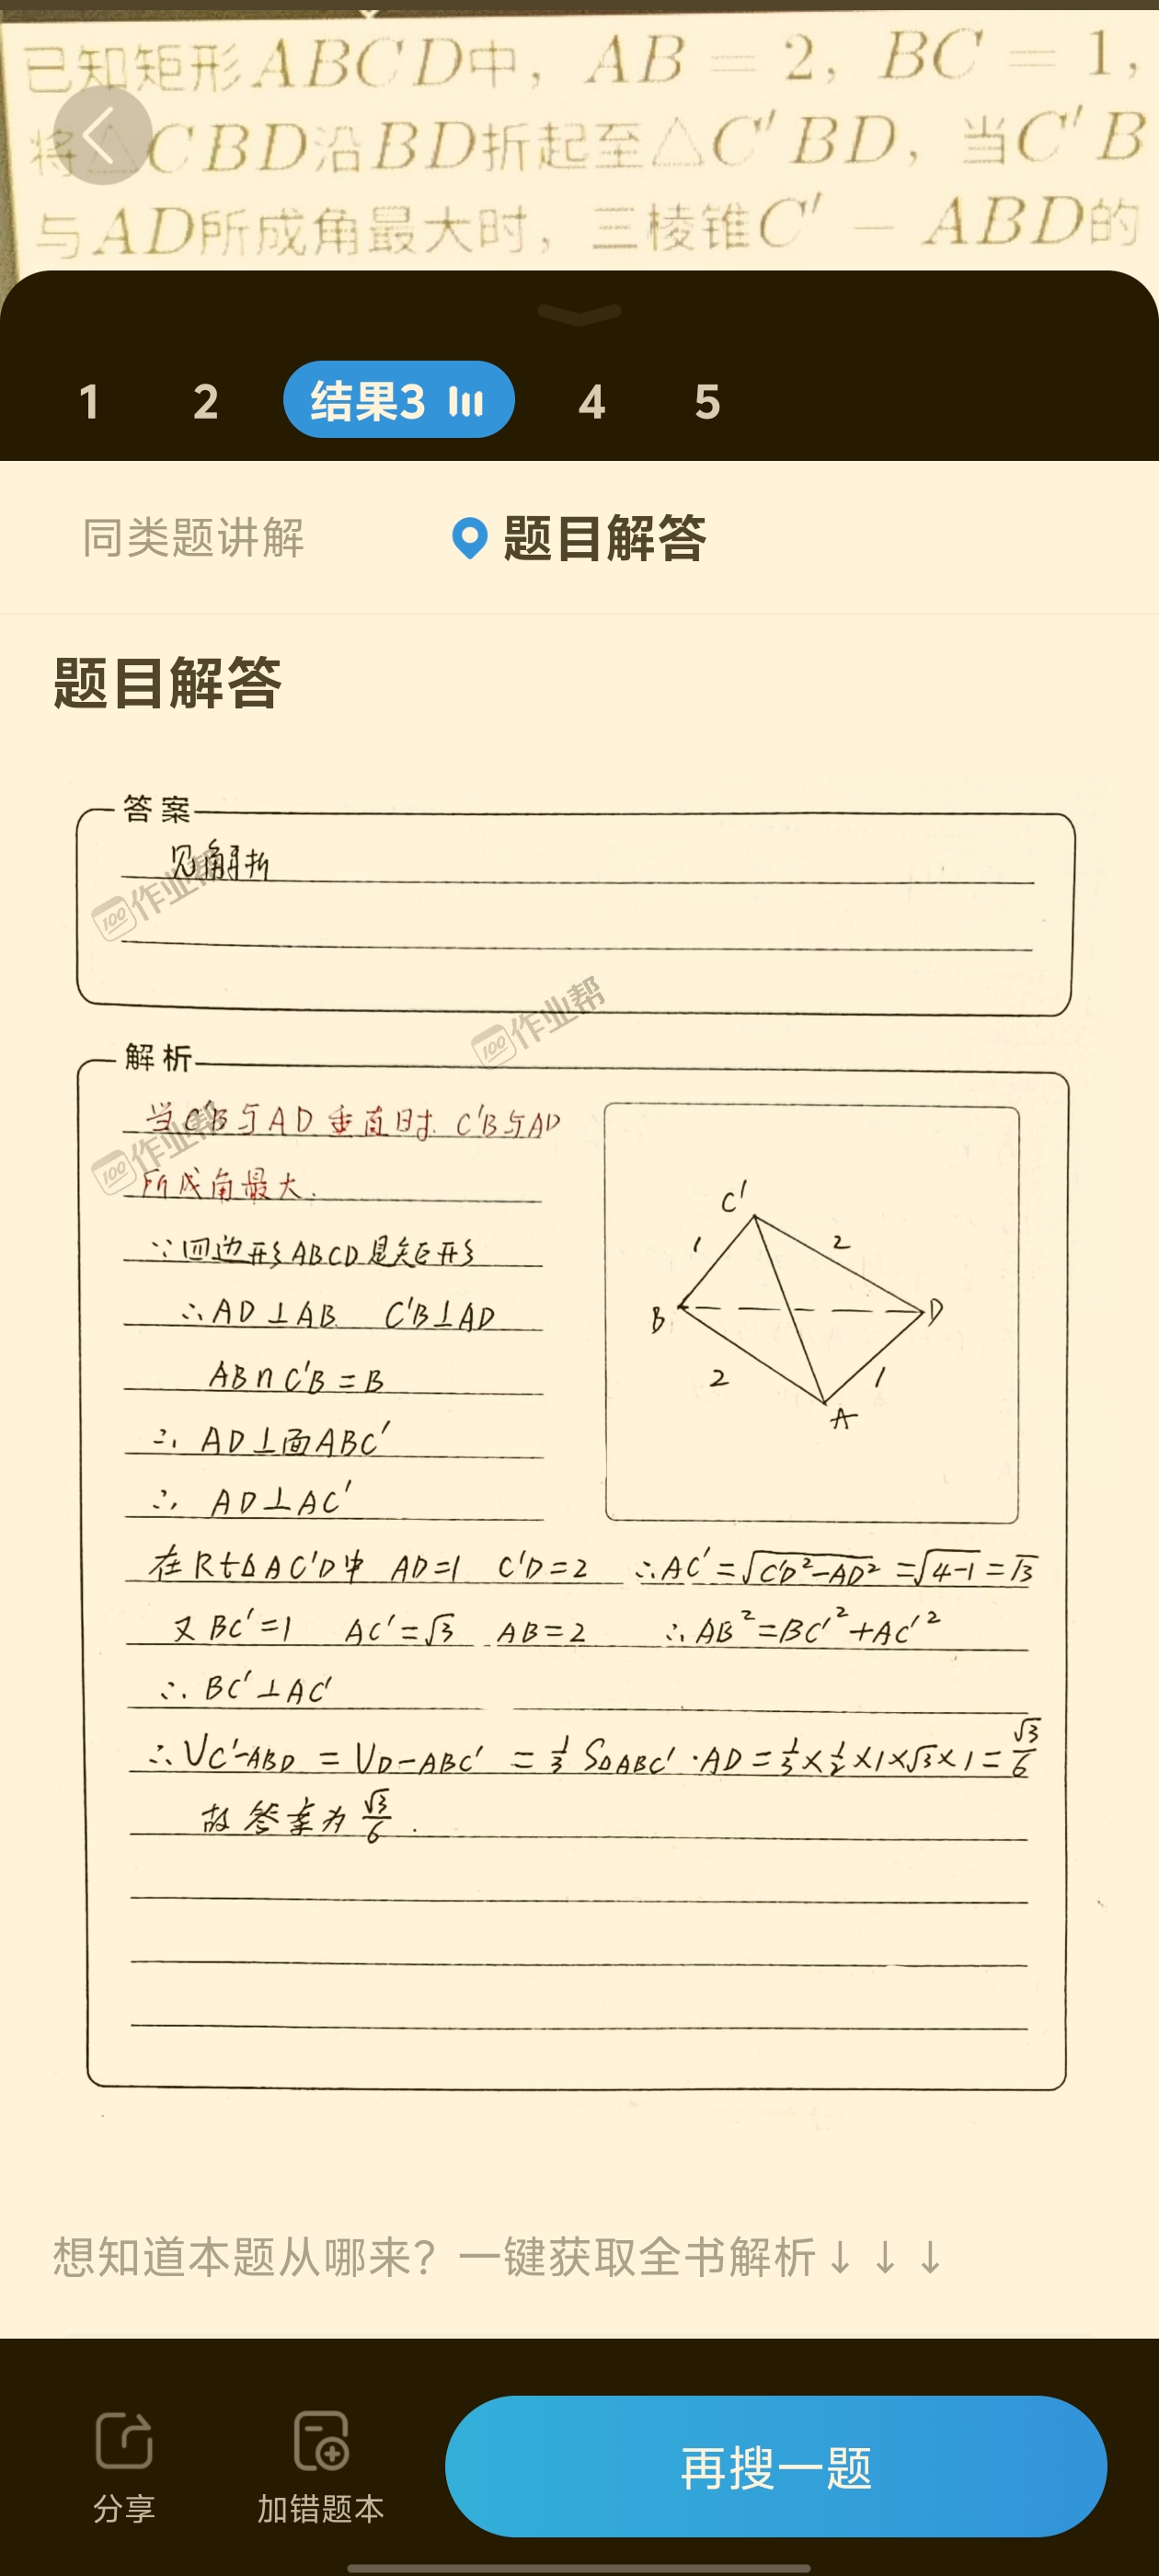 已知矩形ABCD中，AB = 2，BC = 1，
将△CBD沿BD折起至△C′BD，当C′B
与AD所成角最大时，三棱锥C′ − ABD的
1 2 结果3 4 5
同类题讲解 题目解答
题目解答
答案
见解析
作业帮
作业帮
解析
当C′B与AD垂直时. C′B与AD
作业帮
所成角最大.
∵四边形ABCD是矩形
∴AD⊥AB C′B⊥AD
AB∩C′B=B
∴ AD⊥面ABC′
∴ AD⊥AC′
C′
1 2
B D
2 1
A
在Rt△AC′D中 AD=1 C′D=2 ∴AC′=√C′D²−AD² =√4−1=√3
又BC′=1 AC′=√3 AB=2 ∴AB²=BC′²+AC′²
∴ BC′⊥AC′
∴VC′−ABD = VD−ABC′ = 1/3 S△ABC′·AD=1/3×1/2×1×√3×1=√3/6
故答案为√3/6.
想知道本题从哪来？一键获取全书解析↓↓↓
分享 加错题本 再搜一题